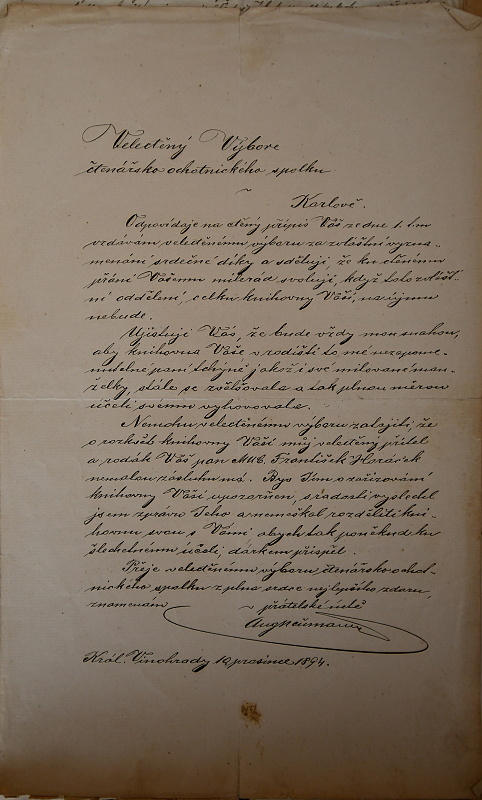 Velectěný Výbore
čtenářsko ochotnického spolku
~
Karlově.
Odpovídaje na ctěný přípis Váš ze dne 1. t.m
vzdávám veleděnému výboru za zvláštní vyzna-
menání srdečné díky a sděluji, že ku ctěnému
přání Vašemu milerád svoluji, když toto zvlášt-
ní oddělení, celku knihovny Vaší, na újmu
nebude.
Ujišťuji Vás, že bude vždy mou snahou,
aby knihovna Vaše v rodišti to mé nezapome-
nutelné paní tchyně jakož i své milované man-
želky, stále se zvětšovala a tak plnou měrou
účeli svému vyhovovala.
Nemohu veleděnému výboru zatajiti, že
o rozkvět knihovny Vaší můj velectěný přítel
a rodák Váš pan MUC. František Horáček
nemalou zásluhu má. Byv Jím o zařizování
knihovny Vaší upozorněn, s radostí vyslechl
jsem zprávu Jeho a nemeškal rozděliti kni-
hovnu svou s Vámi abych tak poněkud ku
šlechetnému účeli, dárkem přispěl.
Přeje veleděnému výboru čtenářsko ochot-
nického spolku z plna srdce nejlepšího zdaru,
znamenám ~ v přátelské úctě
Aug Neumann
Král. Vinohrady 12 prosince 1894.